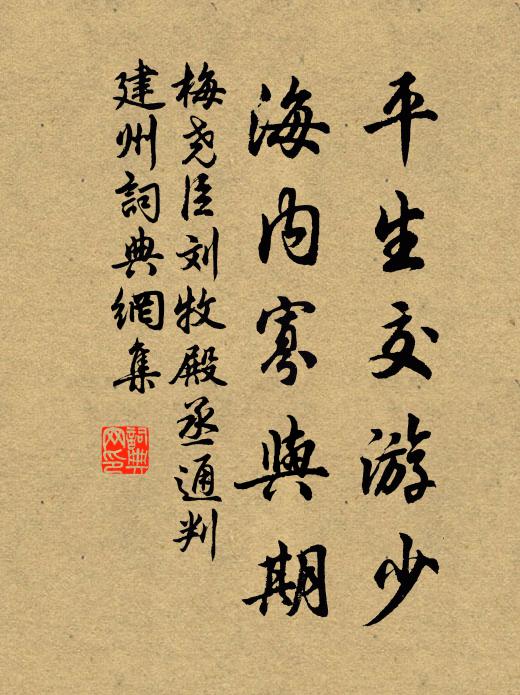 平生交游少
海内寡與期
梅尧臣刘牧殿丞通判
建州詞典網集
詞典网印